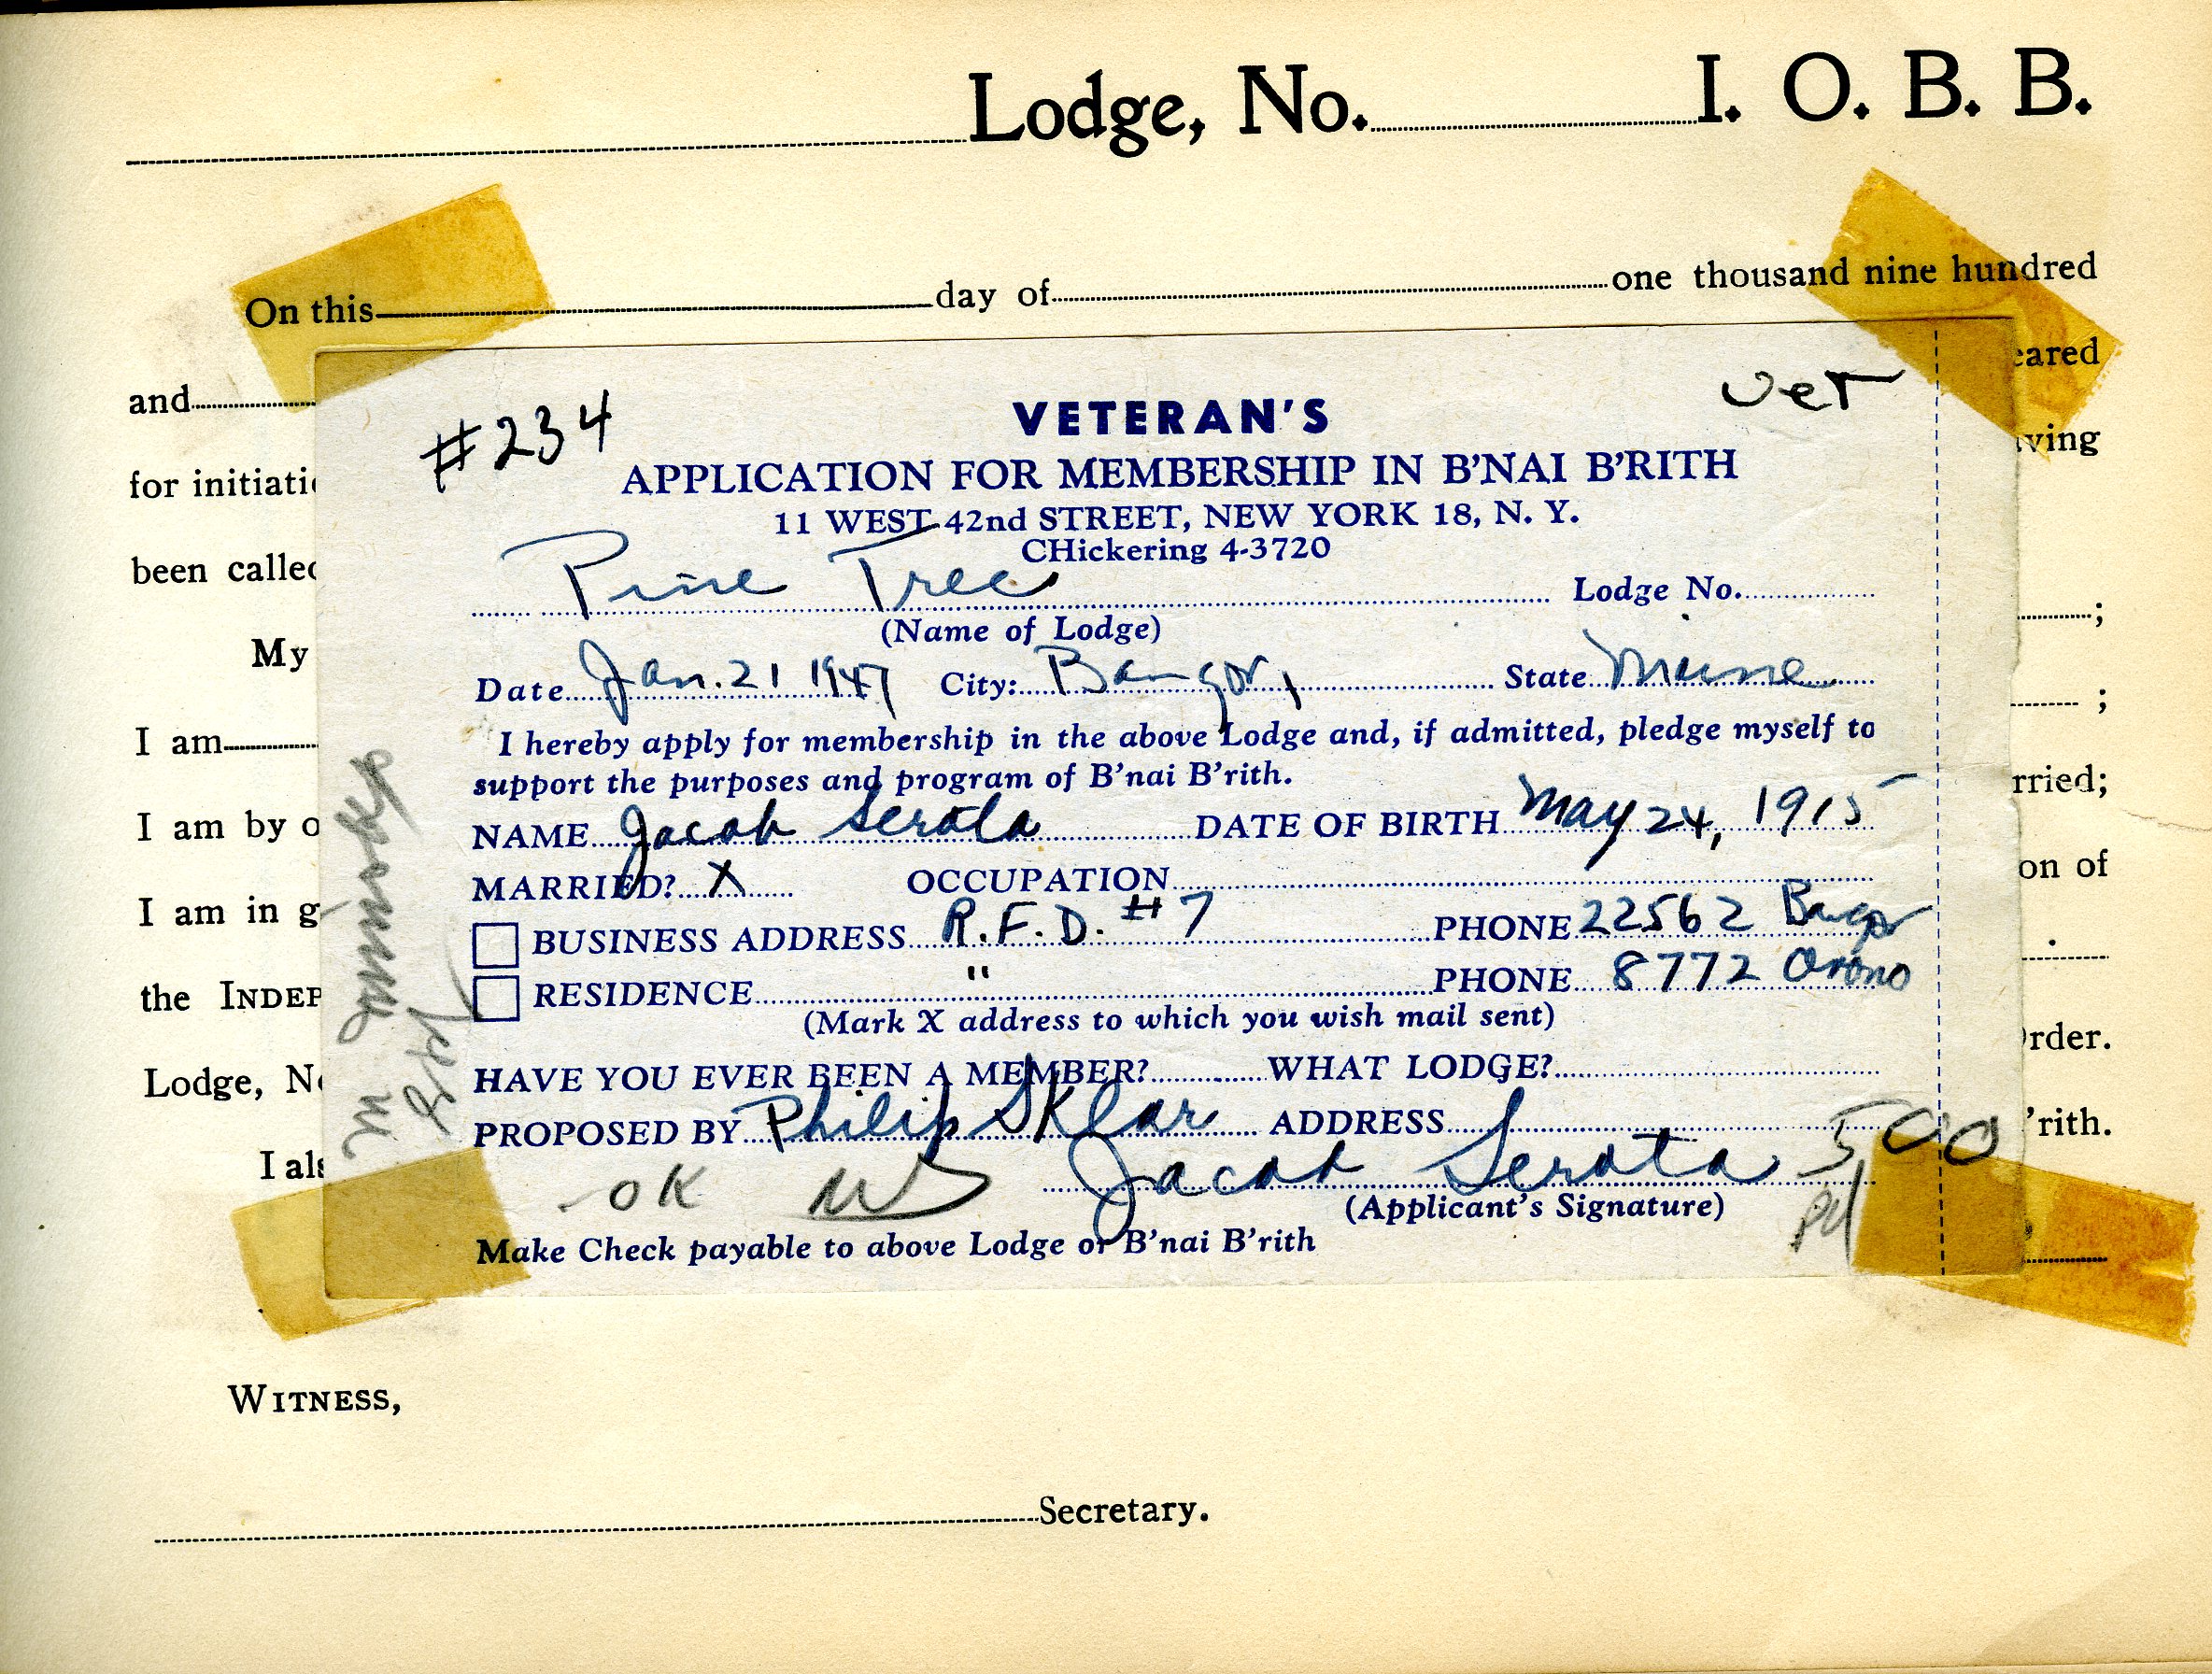 Lodge, No. I. O. B. B.
On this day of one thousand nine hundred
and eared
for initiati ving
been called
My ;
I am ;
I am by o rried;
I am in g on of
the INDEP .
Lodge, No Order.
I als 'rith.
#234 Vet
VETERAN'S
APPLICATION FOR MEMBERSHIP IN B'NAI B'RITH
11 WEST 42nd STREET, NEW YORK 18, N. Y.
CHickering 4-3720
Pine Tree Lodge No.
(Name of Lodge)
Date Jan. 21 1947 City: Bangor, State Maine
I hereby apply for membership in the above Lodge and, if admitted, pledge myself to
support the purposes and program of B'nai B'rith.
NAME Jacob Serota DATE OF BIRTH May 24, 1915
MARRIED? X OCCUPATION
BUSINESS ADDRESS R.F.D. #7 PHONE 22562 Bangor
RESIDENCE " PHONE 8772 Orono
(Mark X address to which you wish mail sent)
HAVE YOU EVER BEEN A MEMBER? WHAT LODGE?
PROPOSED BY Philip Sklar ADDRESS
OK Jacob Serota 500
(Applicant's Signature) Pd
Make Check payable to above Lodge or B'nai B'rith
WITNESS,
Secretary.